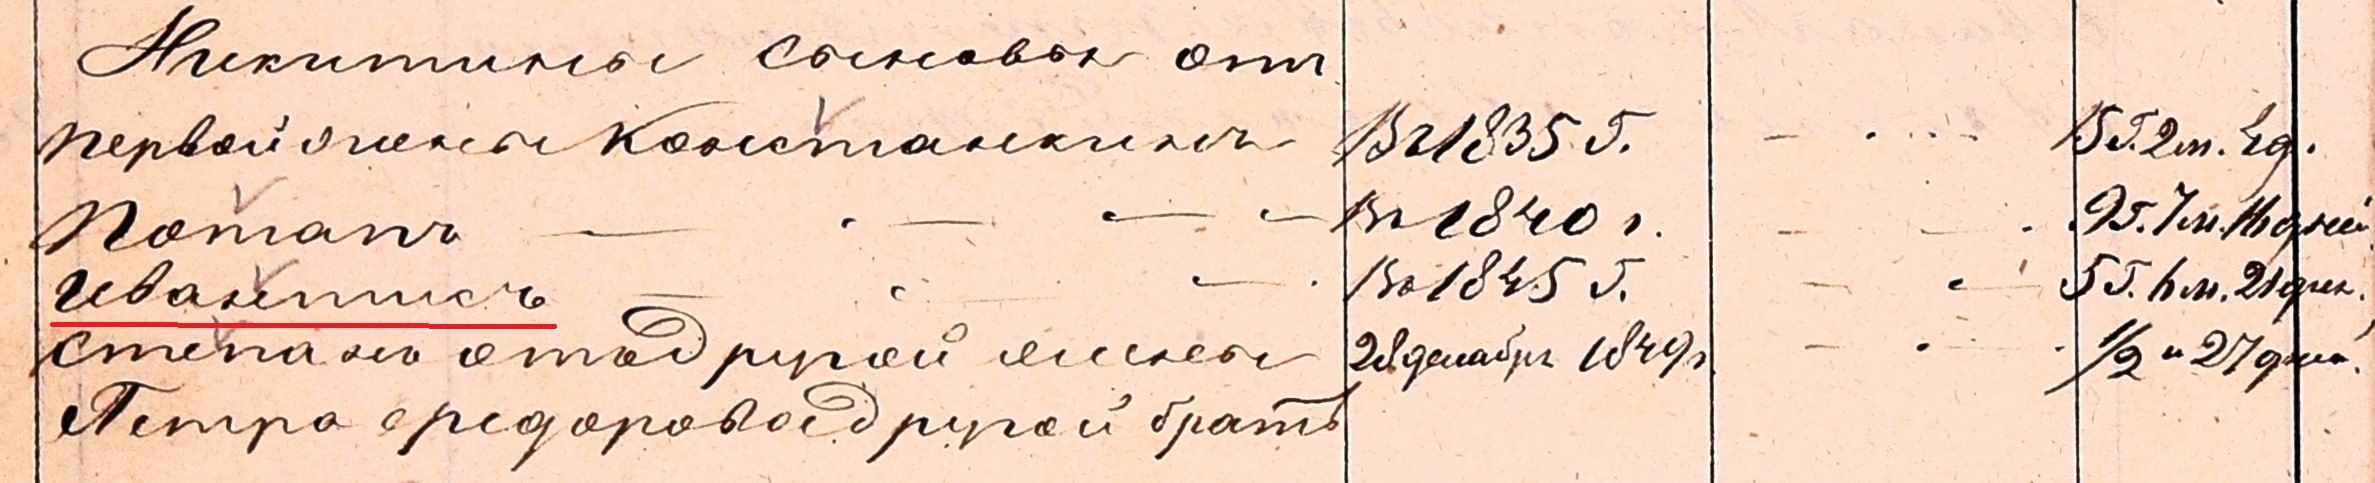 Никитины сыновья отъ
первой жены Константинъ Въ 1835 г. 15 г. 2 м. 4 д.
Потапъ Въ 1840 г. 9 г. 7 м. дней
Иванъ Въ 1845 г. 5 г. 6 м. 21 дня.
Степанъ отъ другой жены 28 декабря 1849 г. 1/2 и 27 дня.
Петра Федорова другой братъ